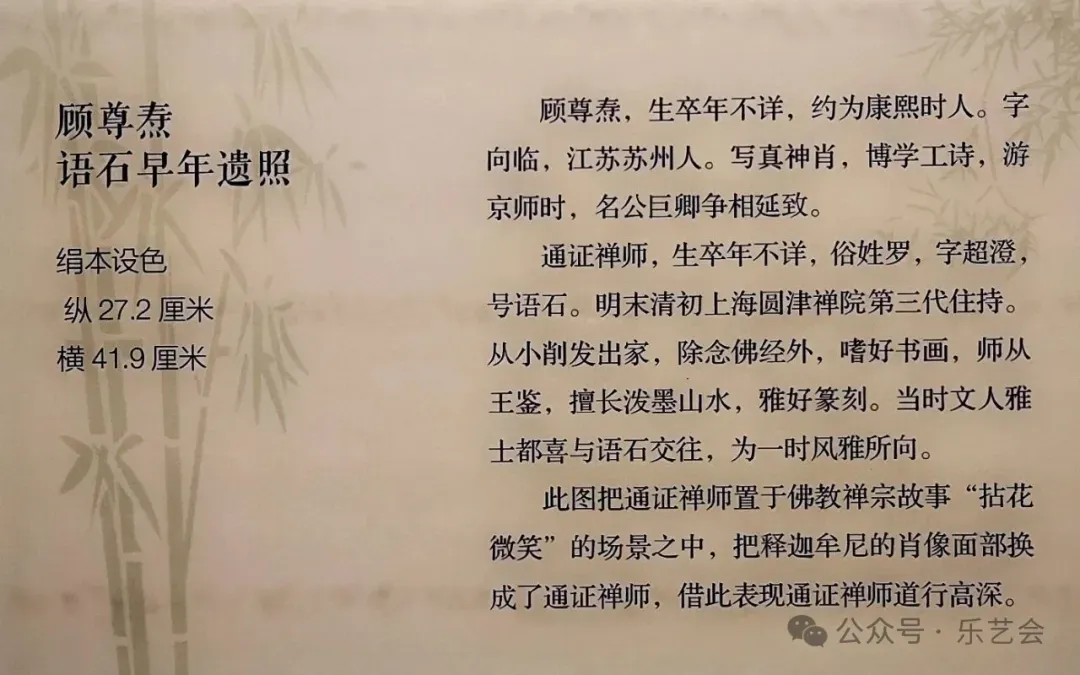 顾尊焘
语石早年遗照
绢本设色
纵 27.2 厘米
横 41.9 厘米
顾尊焘，生卒年不详，约为康熙时人。字
向临，江苏苏州人。写真神肖，博学工诗，游
京师时，名公巨卿争相延致。
通证禅师，生卒年不详，俗姓罗，字超澄，
号语石。明末清初上海圆津禅院第三代住持。
从小削发出家，除念佛经外，嗜好书画，师从
王鉴，擅长泼墨山水，雅好篆刻。当时文人雅
士都喜与语石交往，为一时风雅所向。
此图把通证禅师置于佛教禅宗故事“拈花
微笑”的场景之中，把释迦牟尼的肖像面部换
成了通证禅师，借此表现通证禅师道行高深。
公众号·乐艺会